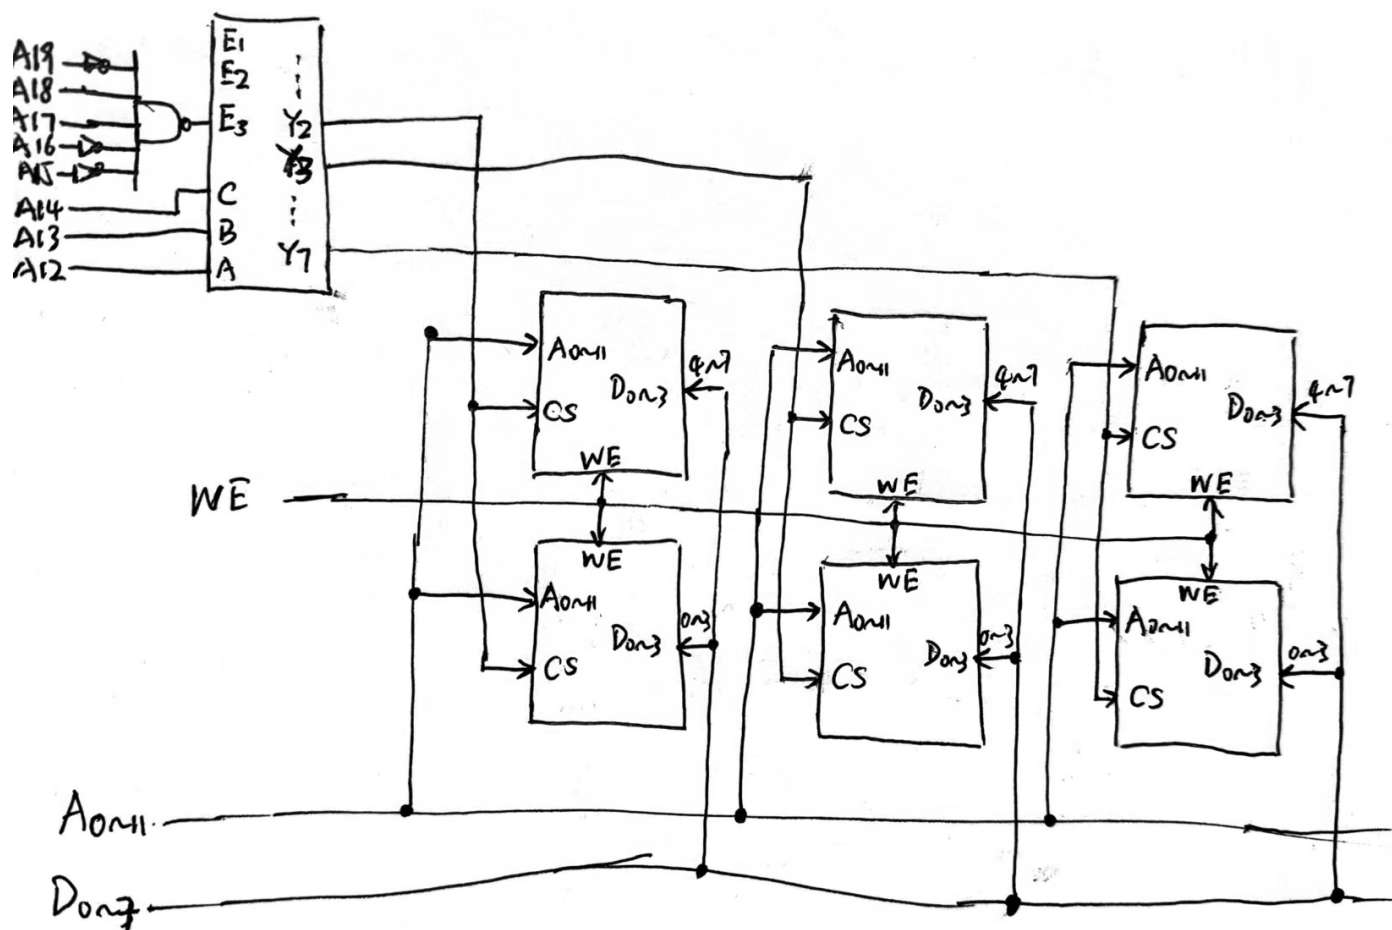 A19
A18
A17
A16
A15
A14
A13
A12
E1
E2
E3
C
B
A
Y2
Y3
Y7
A0~11
CS
D0~3
4~7
WE
A0~11
CS
D0~3
4~7
WE
A0~11
CS
D0~3
4~7
WE
WE
WE
A0~11
CS
D0~3
0~3
WE
A0~11
CS
D0~3
0~3
WE
A0~11
CS
D0~3
0~3
A0~11
D0~7